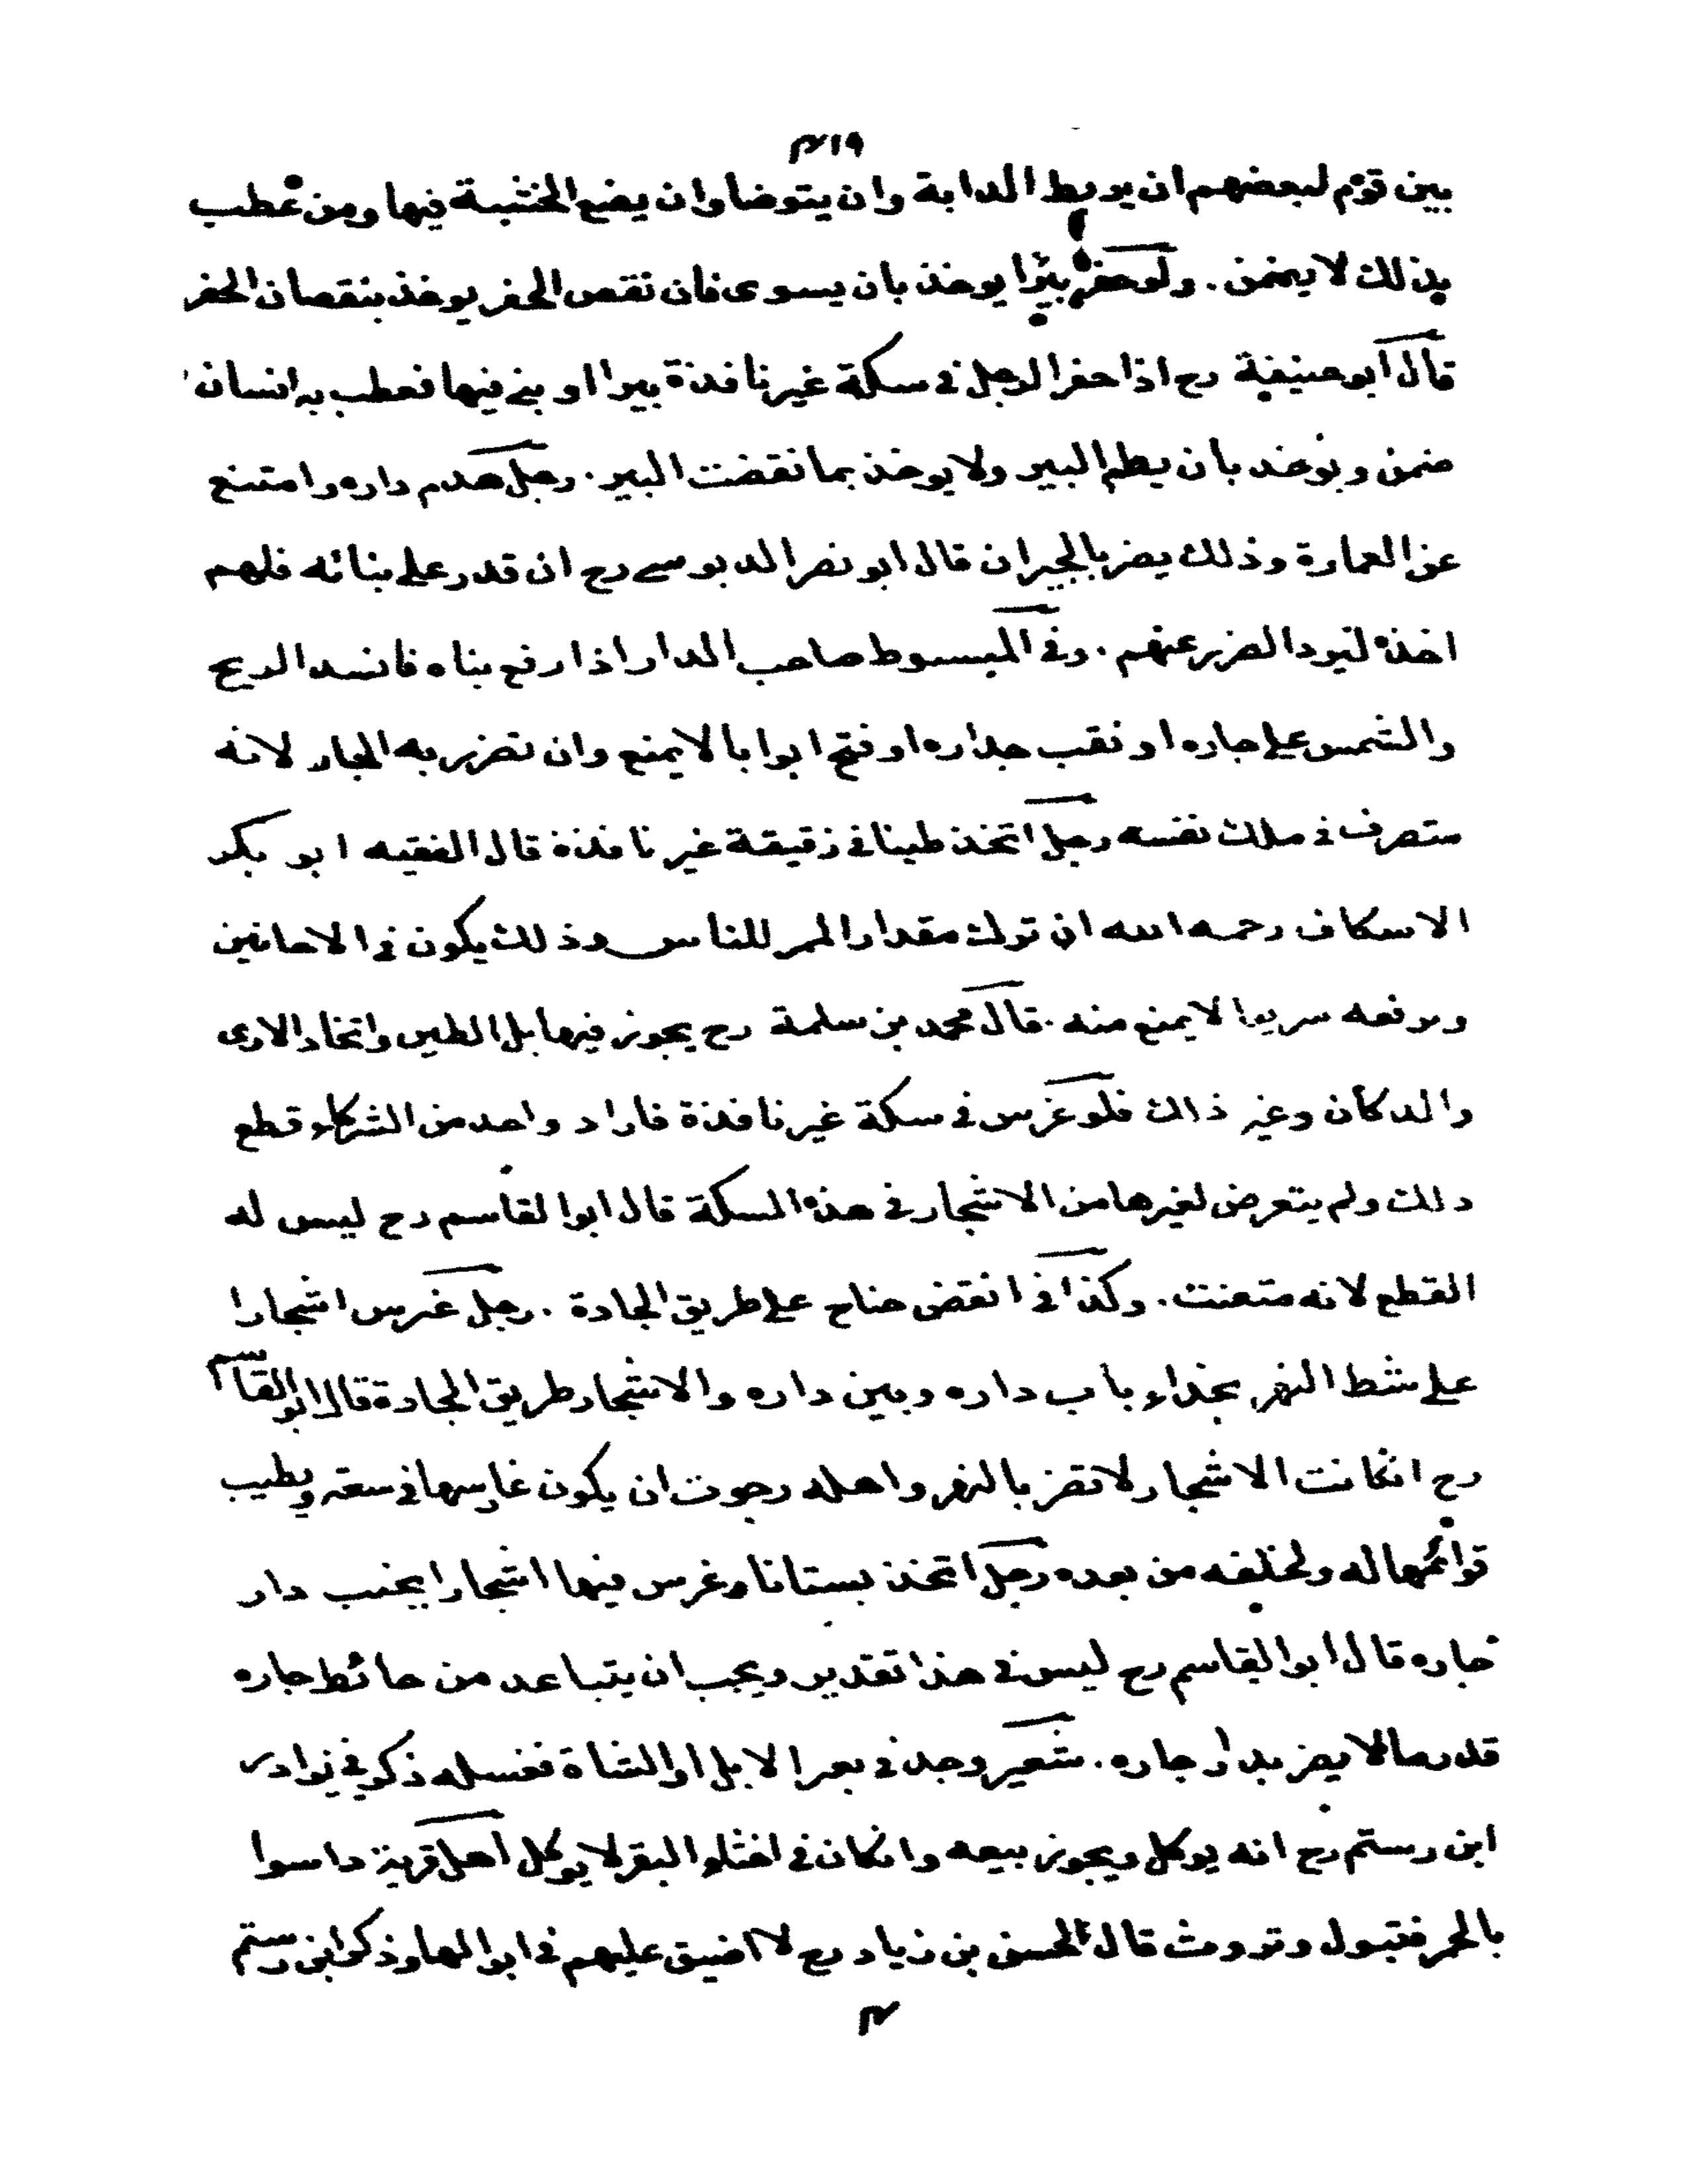 ٤١٩
بين قوم لبعضهم ان يربط الدابة وان يتوضا وان يضع الخشبة فيها ومن عطب
بذلك لا يضمن . ولو حفر بيرا يوخذ بان يسوى فان نقص الحفر يوخذ بنقصان الحفر
قال ابو حنيفة رح اذا حفر الرجل فى سكة غير نافذة بيرا او بنى فيها فعطب به انسان
ضمن ويوخذ بان يطم البير ولا يوخذ بما نقضت البير . رجل هدم داره وامتنع
عن العمارة وذلك يضر بالجيران قال ابو نصر الدبوسے رح ان قدر على بنائه فلهم
اخذه ليرد الضرر عنهم . وفى المبسوط صاحب الدار اذا رفع بناه فانسد الريح
والشمس على جاره او نقب جداره او فتح ابوابا لا يمنع وان تضرر به الجار لانه
متصرف فى ملك نفسه رجل اتخذ طينا فى زقيقة غير نافذة قال الفقيه ابو بكر
الاسكاف رحمه الله ان ترك مقدار الممر للناس وذلك يكون فى الاحانين
ويرفعه سريعا لا يمنع منه . قال محمد بن سلمة رح يجوز فيها بل الطين واتخاذ الارى
والدكان وغير ذالك فلو غرس فى سكة غير نافذة فاراد واحد من الشركاء قطع
ذلك ولم يتعرض لغيرها من الاشجار فى هذه السكة قال ابوالقاسم رح ليس له
القطع لانه متعنت . وكذا فى انقض جناح على طريق الجادة . رجل غرس اشجارا
على شط النهر بحذاء باب داره وبين داره والاشجار طريق الجادة قال ابوالقاسم
رح انكانت الاشجار لا تضر بالنهر واهله رجوت ان يكون غارسها فى سعة ويطيب
قوائمها له ولخلفه من بعده رجل اتخذ بستانا وغرس فيها اشجارا بجنب دار
جاره قال ابوالقاسم رح ليس فى هذا تقدير ويجب ان يتباعد من حائط جاره
قدر مالا يضر بدار جاره . شعير وجد فى بعر الابل او الشاة فغسله ذكر فى نوادر
ابن رستم رح انه يوكل ويجوز بيعه وانكان فى اخثاء البقر لا يوكل اهل قرية داسوا
بالحمر فتبول وتروث قال الحسن بن زياد رح لا اضيق عليهم فى ابوالها وذكر ابن رستم